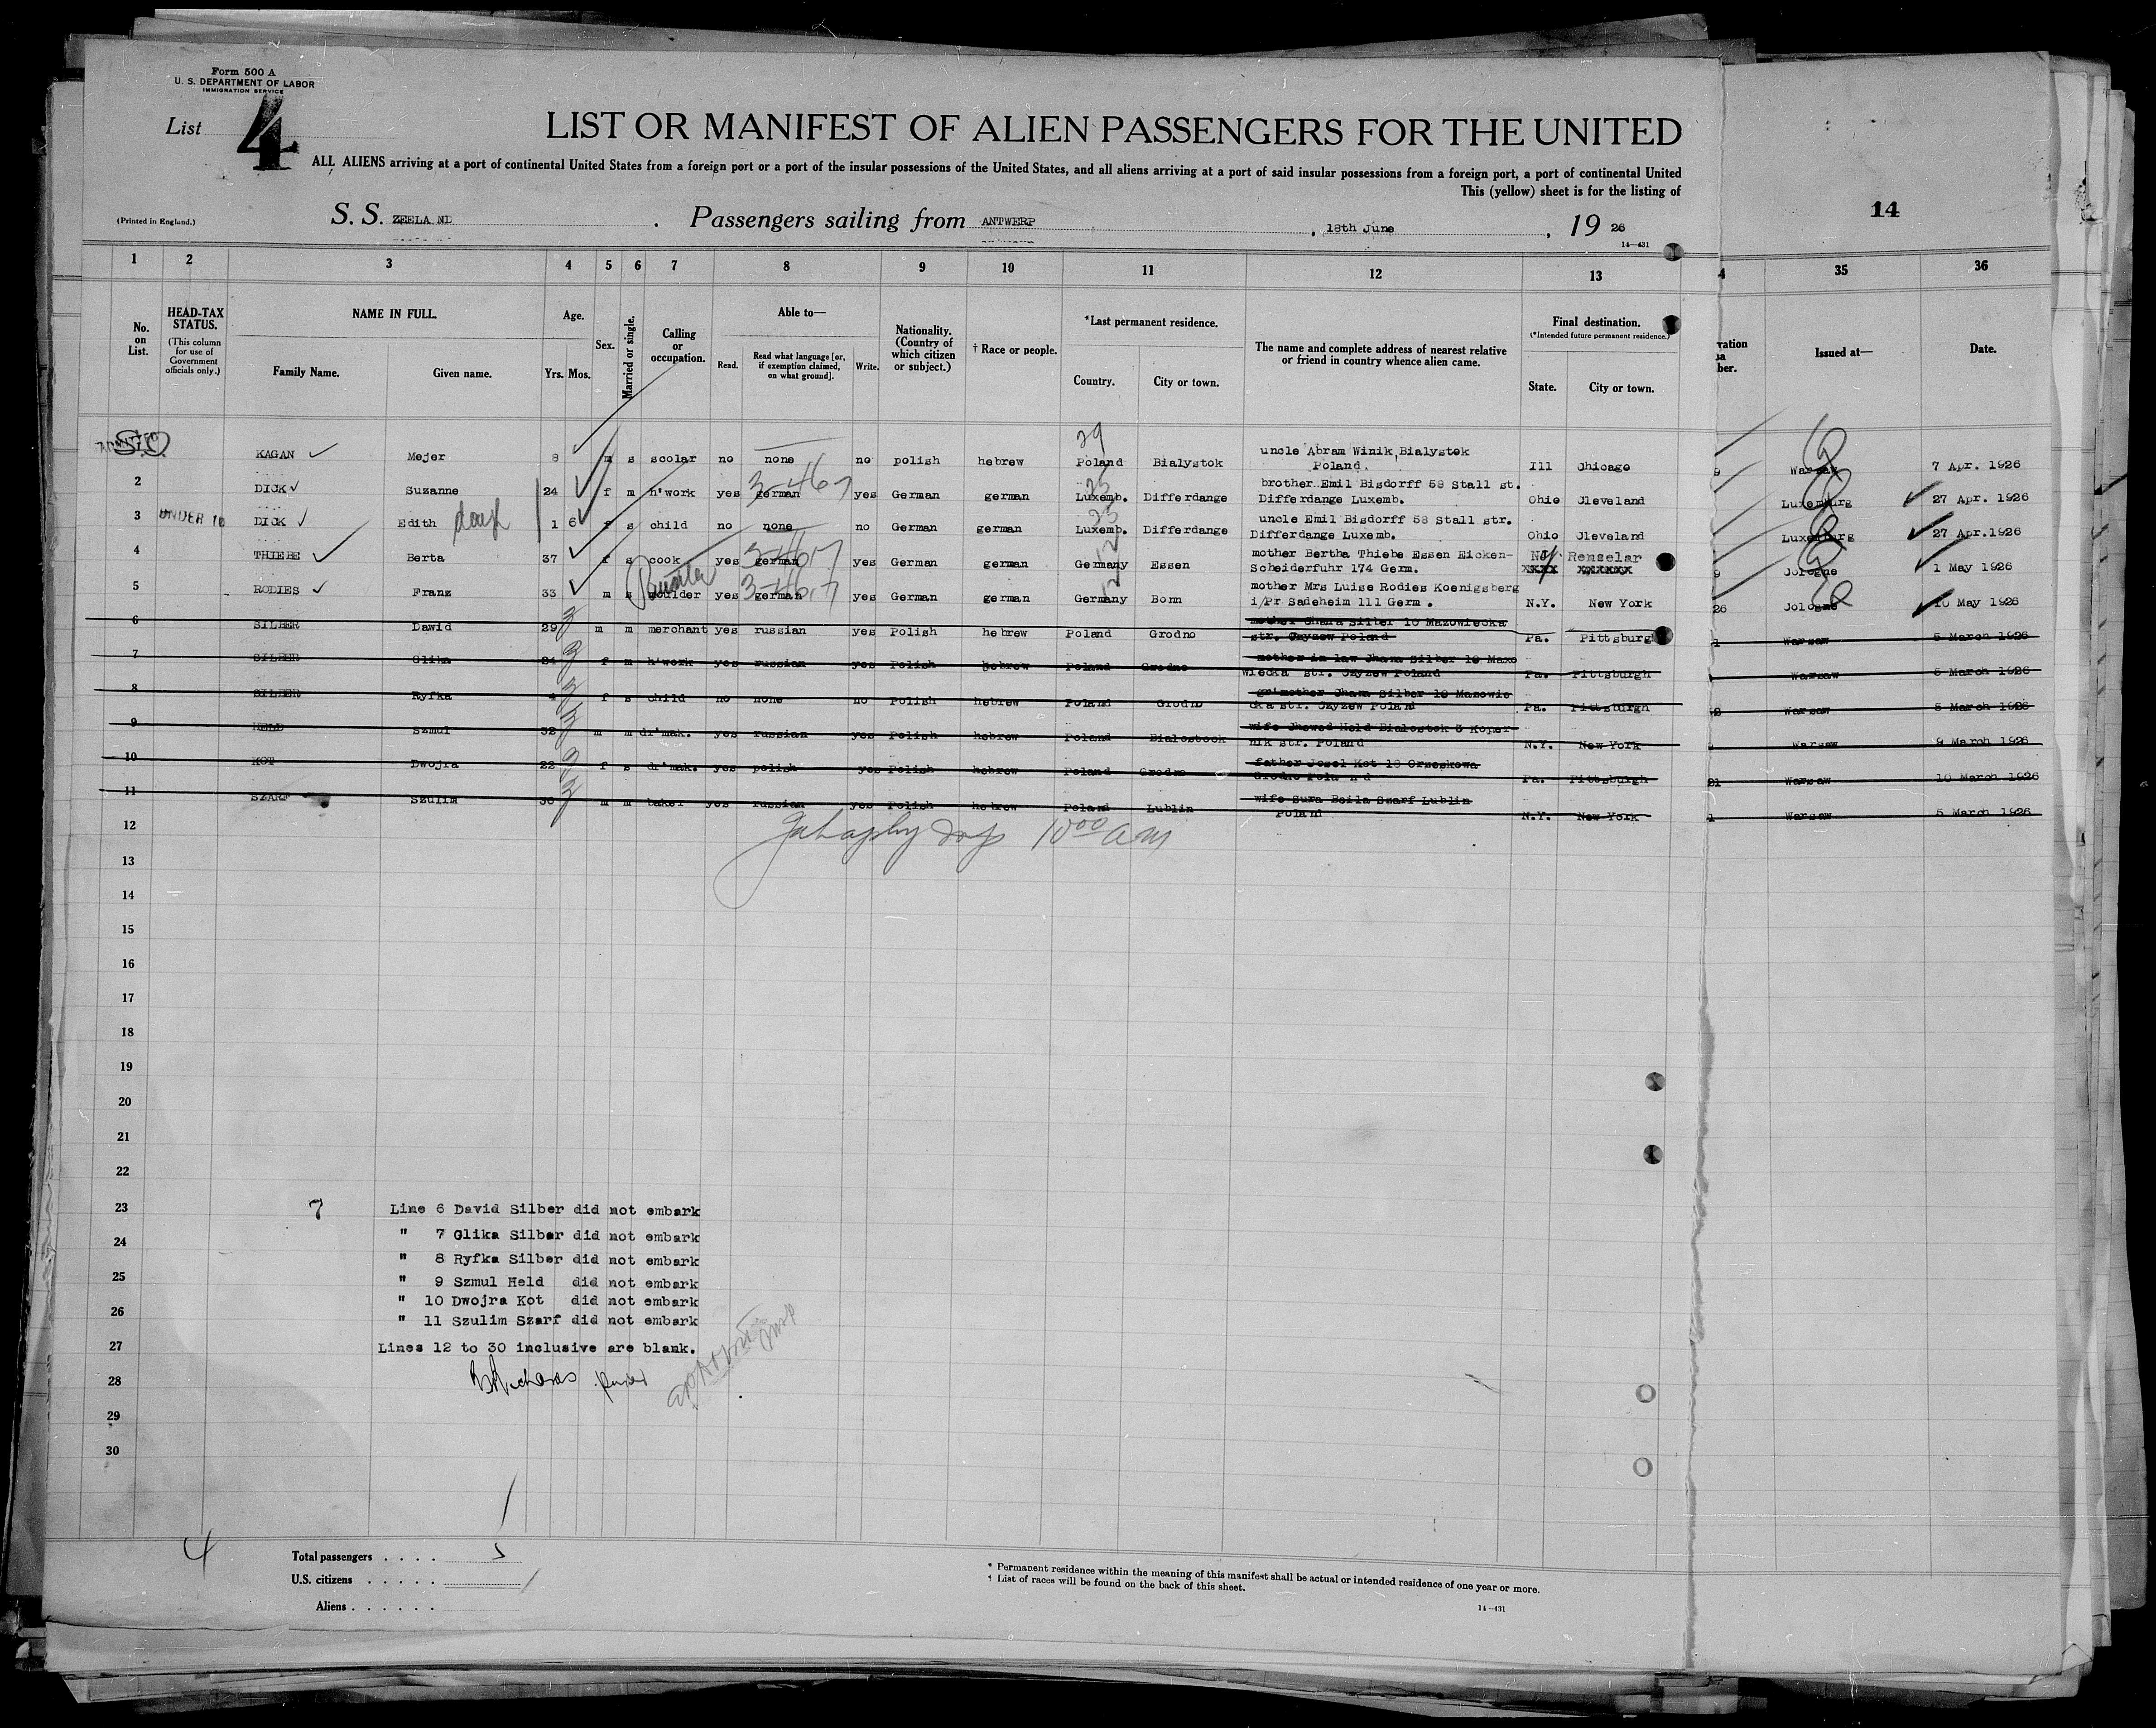 Form 500 A
U. S. DEPARTMENT OF LABOR
IMMIGRATION SERVICE
List 4
LIST OR MANIFEST OF ALIEN PASSENGERS FOR THE UNITED
ALL ALIENS arriving at a port of continental United States from a foreign port or a port of the insular possessions of the United States, and all aliens arriving at a port of said insular possessions from a foreign port, a port of continental United
This (yellow) sheet is for the listing of
14
(Printed in England.)
S. S. ZEELAND . Passengers sailing from ANTWERP , 18th June , 19 26
14—431
1 2 3 4 5 6 7 8 9 10 11 12 13 4 35 36
No. on List.
HEAD-TAX STATUS.
(This column for use of Government officials only.)
NAME IN FULL.
Family Name. Given name.
Age.
Yrs. Mos.
Sex.
Married or single.
Calling or occupation.
Able to—
Read. Read what language [or, if exemption claimed, on what ground]. Write.
Nationality. (Country of which citizen or subject.)
† Race or people.
*Last permanent residence.
Country. City or town.
The name and complete address of nearest relative or friend in country whence alien came.
Final destination.
(*Intended future permanent residence.)
State. City or town.
Issued at—
Date.
ADMITTED
S.O.
KAGAN Mejer 8 m s scolar no none no polish hebrew 29 Poland Bialystok uncle Abram Winik, Bialystok Poland. Ill Chicago 9 Warsaw 7 Apr. 1926
2 DICK Suzanne 24 f m h'work yes german 3-467 yes German german 23 Luxemb. Differdange brother Emil Bisdorff 58 Stall st. Differdange Luxemb. Ohio Cleveland Luxemburg 27 Apr. 1926
3 UNDER 16 DICK Edith 1 6 f s child no none no German german 23 Luxemb. Differdange uncle Emil Bisdorff 58 Stall str. Differdange Luxemb. Ohio Cleveland Luxemburg 27 Apr.1926
4 THIEBE Berta 37 f s cook yes german 3-467 yes German german 12 Germany Essen mother Bertha Thiebe Essen Eicken- Scheiderfuhr 174 Germ. NY Renzelar XXXX XXXXXX 9 Cologne 1 May 1926
5 RODIES Franz 33 m s moulder yes german 3-467 yes German german 12 Germany Bonn mother Mrs Luise Rodies Koenigsberg i/Pr Sadeheim 111 Germ. N.Y. New York 26 Cologne 10 May 1926
6 SILBER Dawid 29 m m merchant yes russian yes Polish hebrew Poland Grodno mother Chana Silber 10 Mazowiecka str. Czyzew Poland Pa. Pittsburgh Warsaw 5 March 1926
7 SILBER Glika 24 f m h'work yes russian yes Polish hebrew Poland Grodno mother in law Jhana Silber 10 Mazo wiecka str. Czyzew Poland Pa. Pittsburgh Warsaw 5 March 1926
8 SILBER Ryfka 4 f s child no none no Polish hebrew Poland Grodno gr'mother Jhana Silber 10 Mazowie cka str. Czyzew Poland Pa. Pittsburgh Warsaw 5 March 1926
9 HELD Szmul 32 m m dr'mak. yes russian yes Polish hebrew Poland Bialostock wife Jhewed Held Bialostok 3 Koper nik str. Poland N.Y. New York Warsaw 9 March 1926
10 KOT Dwojra 22 f s dr'mak. yes polish yes Polish hebrew Poland Grodno father Josel Kot 18 Orzeskowa Grodno Poland Pa. Pittsburgh 21 Warsaw 10 March 1926
11 SZARF Szulim 36 m m baker yes russian yes Polish hebrew Poland Lublin wife Sura Beila Szarf Lublin Poland N.Y. New York Warsaw 5 March 1926
12
13
14
15
16
17
18
19
20
21
22
23 7 Line 6 David Silber did not embark
" 7 Glika Silber did not embark
24
" 8 Ryfka Silber did not embark
25 " 9 Szmul Held did not embark
" 10 Dwojra Kot did not embark
26 " 11 Szulim Szarf did not embark
27 Lines 12 to 30 inclusive are blank.
28
29
30
4
Total passengers . . . . 5
U.S. citizens . . . . .
Aliens . . . . . .
* Permanent residence within the meaning of this manifest shall be actual or intended residence of one year or more.
† List of races will be found on the back of this sheet.
14—431